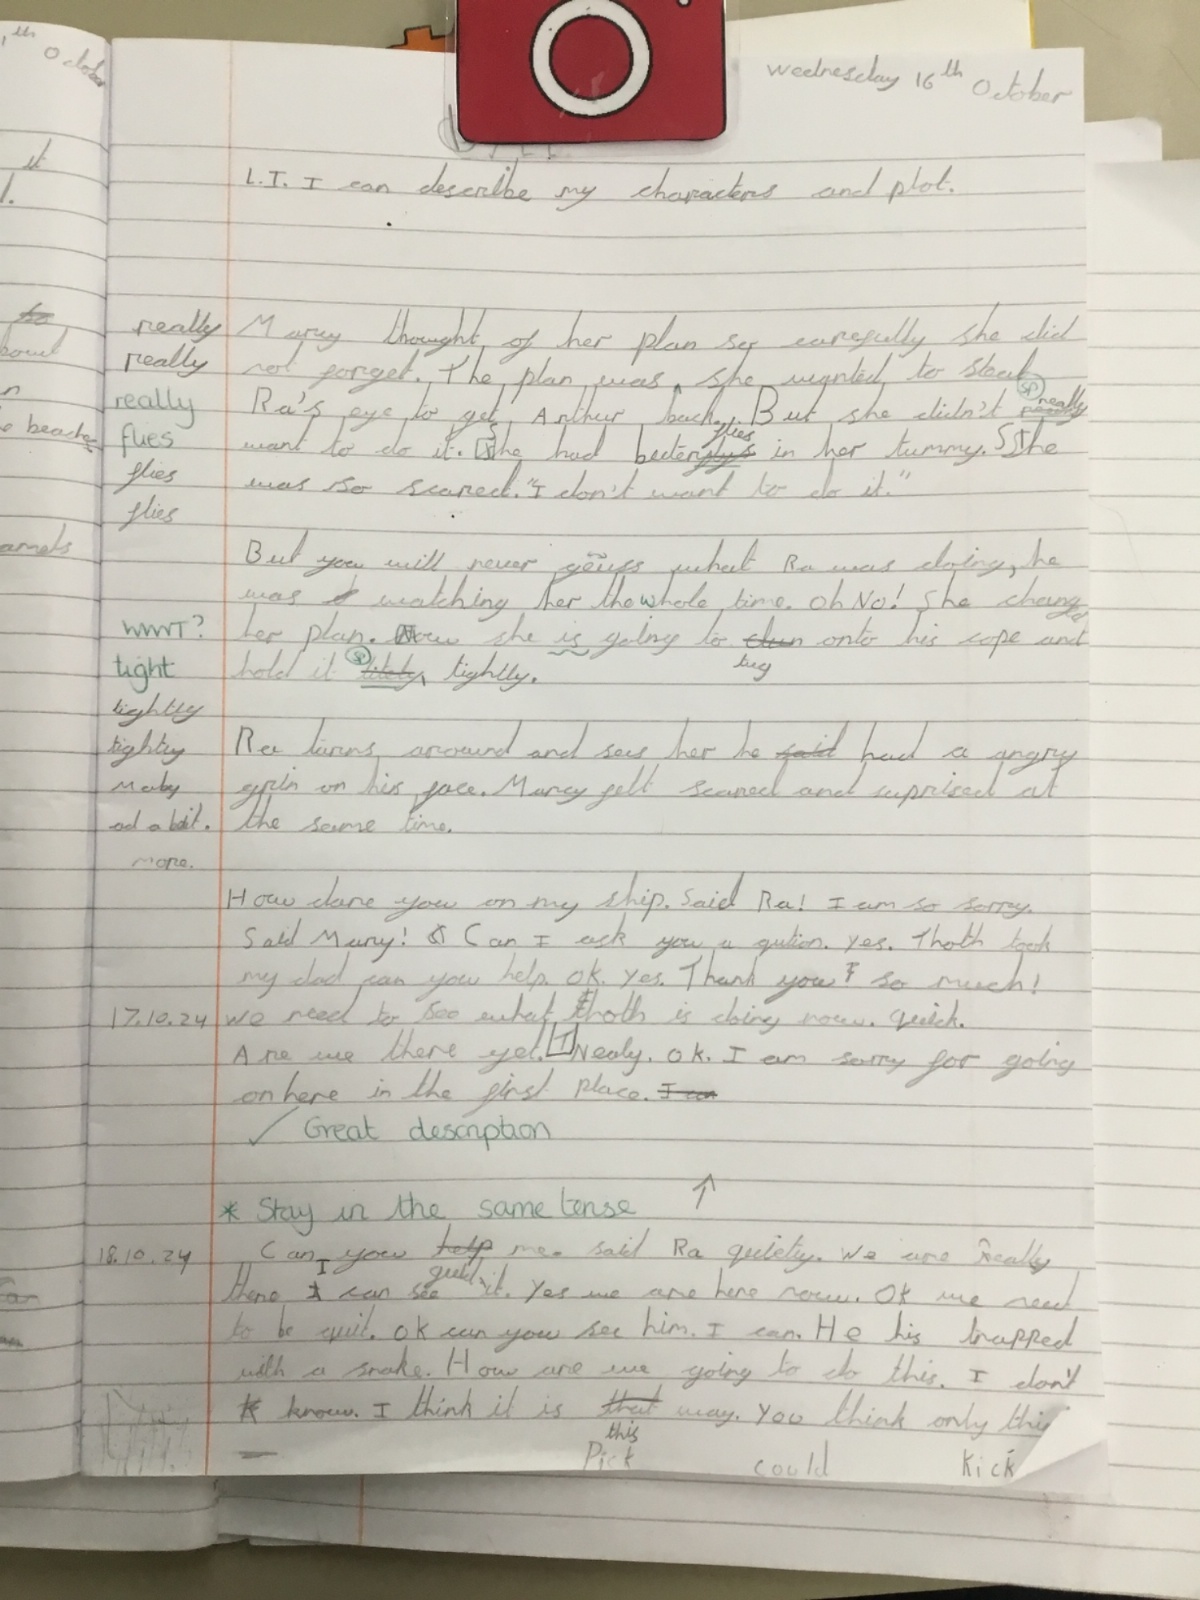 Wednesday 16th October
L.I. I can describe my characters and plot.
really Marcy thought of her plan so carefully she did
really not forget. The plan was, she wanted to steal
really Ra's eye to get Arthur back. But she didn't sp really
flies want to do it. She had buterflys flies in her tummy. She
flies was so scared. "I don't want to do it."
flies
But you will never geuss what Ra was doing, he
was watching her the whole time. Oh No! She changed
WWT? her plan. Now she is going to onto his cape and
tug
tight hold it sp titely tightly.
tightly
tightly Ra turns around and sees her he said had a angry
Maby grin on his face. Marcy felt scared and suprised at
ad a bit. the same time.
more.
How dare you on my ship. Said Ra! I am so sorry.
Said Marcy! Can I ask you a qution. Yes. Thoth took
my dad can you help. Ok. Yes. Thank you so much!
17.10.24 We need to see what thoth is doing now. Quick.
Are we there yet. Nealy. Ok. I am sorry for going
on here in the first place.
✓ Great description
* Stay in the same tense ↑
18.10.24 Can you help me. said Ra quietly. We are really
there I can see it. Yes we are here now. Ok we need
to be quit. Ok can you see him. I can. He his trapped
with a snake. How are we going to do this. I don't
know. I think it is that way. You think only this
this
Pick could Kick
October
it
beach